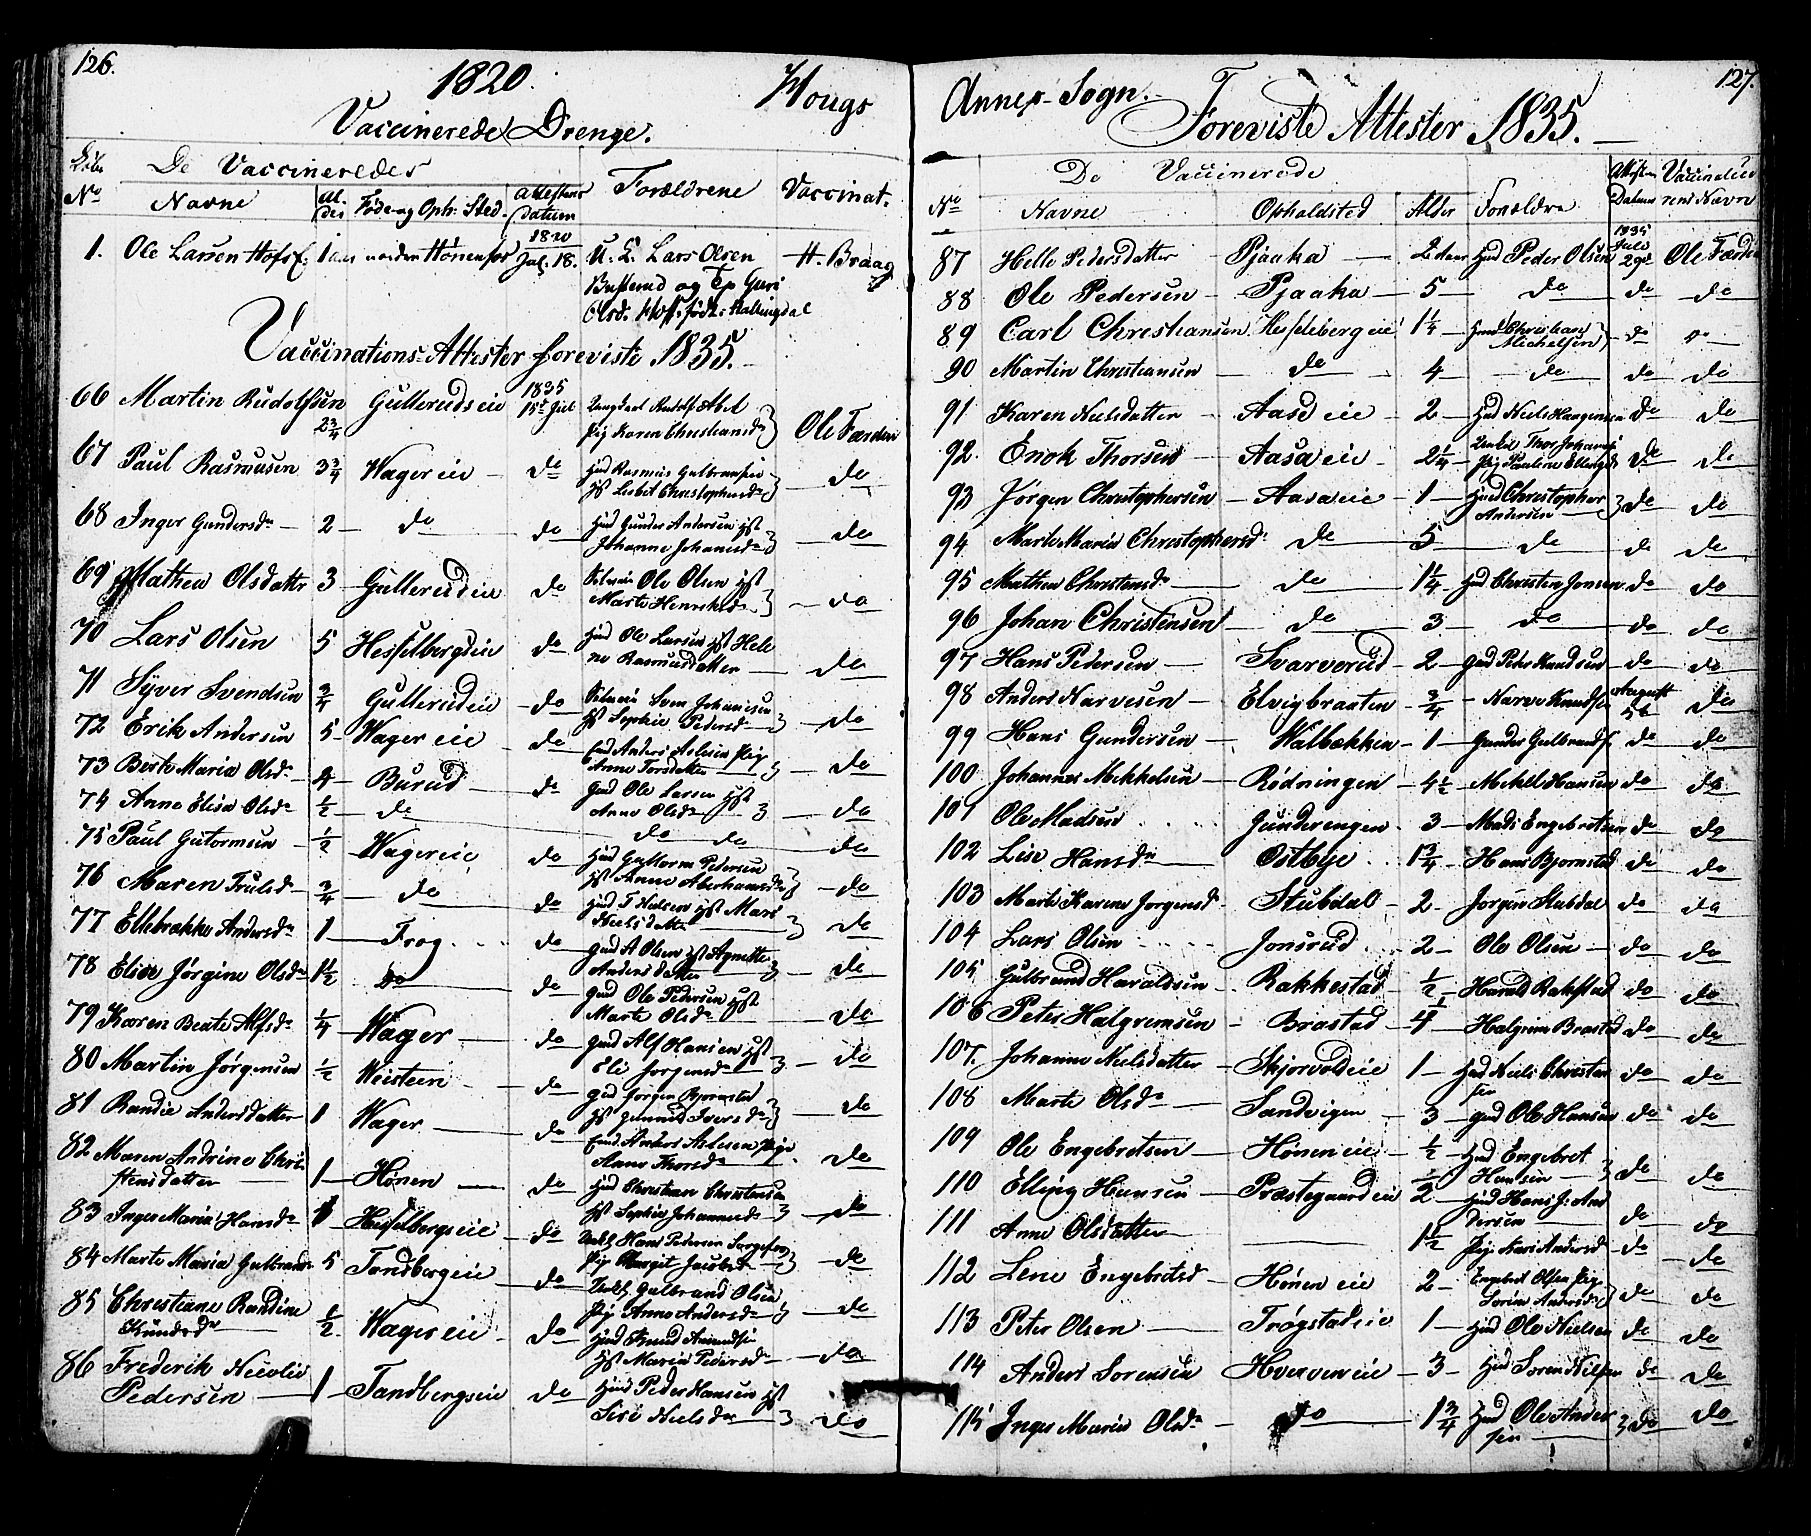 126.
1820.
Hougs
Vaccinerede Drenge.
Løbe No
De Vaccineredes
Navne
Al-der
Føde og Oph: Sted.
Attestens Datum
Forældrene
Vaccinat.
1. Ole Larsen Hofs 1 aar norden Hønenfos 1820 Jul. 18. U. K. Lars Olsen H. Braag
Busterud og Tp Guri
Olsd. Hoff født i Hallingdal
Vaccinations Attester foreviste 1835.
66 Martin Rudolfsen 2 3/4 Gullerudseie 1835 Rudolf Pig Karen Christiansdr Ole Færden
67 Paul Rasmusen 3 3/4 Wagereie do Huusmd Rasmus Gulbrandsen Hst Lisbet Christophersdr do
68 Inger Gundersdr 2 do do Hmd Gunder Andersen Hst Johanne Johansdr do
69 Mathea Olsdatter 3 Gullerudeie do Ole Olsen Hst Marte Henriksdr do
70 Lars Olsen 5 Hesselbergseie do Hmd Ole Larsen Hst Helene Rasmusdatter do
71 Syver Svendsen 3/4 Gullerudeie do Sven Johannesen Hst Sophie Pedersdr do
72 Erik Andersen 5 Wagereie do Anders Aslesen Pig Anne Torsdatter do
73 Berte Maria Olsdr Burud do Gmd Ole Larsen Hst Anne Olsdr do
74 Anne Elisa Olsdr 1/2 do do do do
75 Paul Gutormsen 1/2 Wagereie do Hmd Guttorm Pedersen Hst Anne Aberhamsdr do
76 Maren Trulsd 3/4 do do Hmd T Nielsen Hst Mari Nielsdatter do
77 Ellebrække Andersdr 1 Frog do Gmd A Olsen Hst Agnette Andersdatter do
78 Elise Jørgine Olsdr 1 1/2 do do Gmd Ole Pedersen Hst Marte Olsdr do
79 Karen Beate Alfsdr 1/4 Wager do Gmd Alf Hansen Hst Eli Jorgensdr do
80 Martin Jørgensen 1/2 Weisteen do Gmd Jørgen Bjornstad Hst Gunnild Iversdr do
81 Randie Andersdatter 1 Wager do Anders Aslesen Pige Anne Thorsdr do
82 Maren Andrine Christensdatter 1 Hønen do Hmd Christian Christensen Hst Sophie Johannesdr do
83 Inger Maria Hansdr Hesselbergseie do Hans Pedersen Pig Margit Jacobsd do
84 Marte Maria Gulbrands 5 Tandbergeie do Gulbrand Olsen Pig Anne Andersdr do
85 Christiane Randine Knudsdr 1/2 Wagerseie do Hmd Knud Amundsen Hst Maria Pedersdr do
86 Frederik Nicolai Pedersen 1 Tandbergseie do Hmd Peder Hansen Hst Lise Nielsdr do
127.
Annex-Sogn.
Foreviste Attester 1835.
De Vaccinerede
No
Navne
Opholdsted
Alder
Forældre
Attesten Datum
Vaccinateurens Navn
87 Helle Pedersdatter Pjaaka 2 aar Hmd Peder Olsen 1835 Juli 29de Ole Færden
88 Ole Pedersen Pjaaka 5 do do do
89 Carl Christiansen Hesselebergeie 1 1/4 Hmd Christian Michelsen do do
90 Martin Christiansen do 4 do do do
91 Karen Nielsdatter Aaseie 2 Hmd Niels Haagensen do do
92. Enok Thorsen Aasaeie 2 1/4 Thor Johannes Pig Pauline Ellingsd do do
93 Jørgen Christophersen Aasaeie 1 Hmd Christopher Andersen do do
94 Marte Maria Christophersd do 5 do do do
95 Mathea Christensdr do 1 1/4 Hmd Christen Jensen do do
96 Johan Christensen do 3 do do do
97 Hans Pedersen Svarverud 2 Gmd Peter Knudsen do do
98 Anders Narvesen Elvigbraaten 3/4 Narve Knudsen August 5te do
99 Hans Gundersen Walbækken 1 Gunder Gulbrands do do
100 Johannes Mikkelsen Rødningen 4 1/2 Mikkel Hansen do do
101 Ole Madsen Gunderengen 3 Mads Engebretsen do do
102 Lise Hansdr Østbye 1 3/4 Hans Bjornstad do do
103 Marte Karine Jorgensd Stubdal 2 Jorgen Stubdal do do
104 Lars Olsen Jonsrud 2 Ole Olsen do do
105 Gulbrand Haraldsen Rakkestad 1/2 Harald Rakkestad do do
106 Peter Halgrimsen Brastad 1/4 Halgrim Brastad do do
107. Johanne Nielsdatter Skjorvoldeie 1 Hmd Niels Christensen do do
108 Marte Olsdr Sandvigen 3 Gmd Ole Hansen do do
109 Ole Engebretsen Høneneie 1/2 Hmd Engebret Hansen do do
110 Elling Hansen Præstegaardeie Hmd Hans J: Andersen do do
111 Anne Olsdatter 1 1/2 Pig. Kari Andersd do do
112 Lene Engebretsd Høneneie 2 Engebret Olsen Pig Sorine Andersdr do do
113 Peter Olsen Trøgstadeie 1 Hmd Ole Nielsen do do
114 Anders Sorensen Hverveneie 3 Hmd Soren Nilsen do do
115 Inger Maria Olsdr do 1 3/4 Hmd Ole Andersen do do